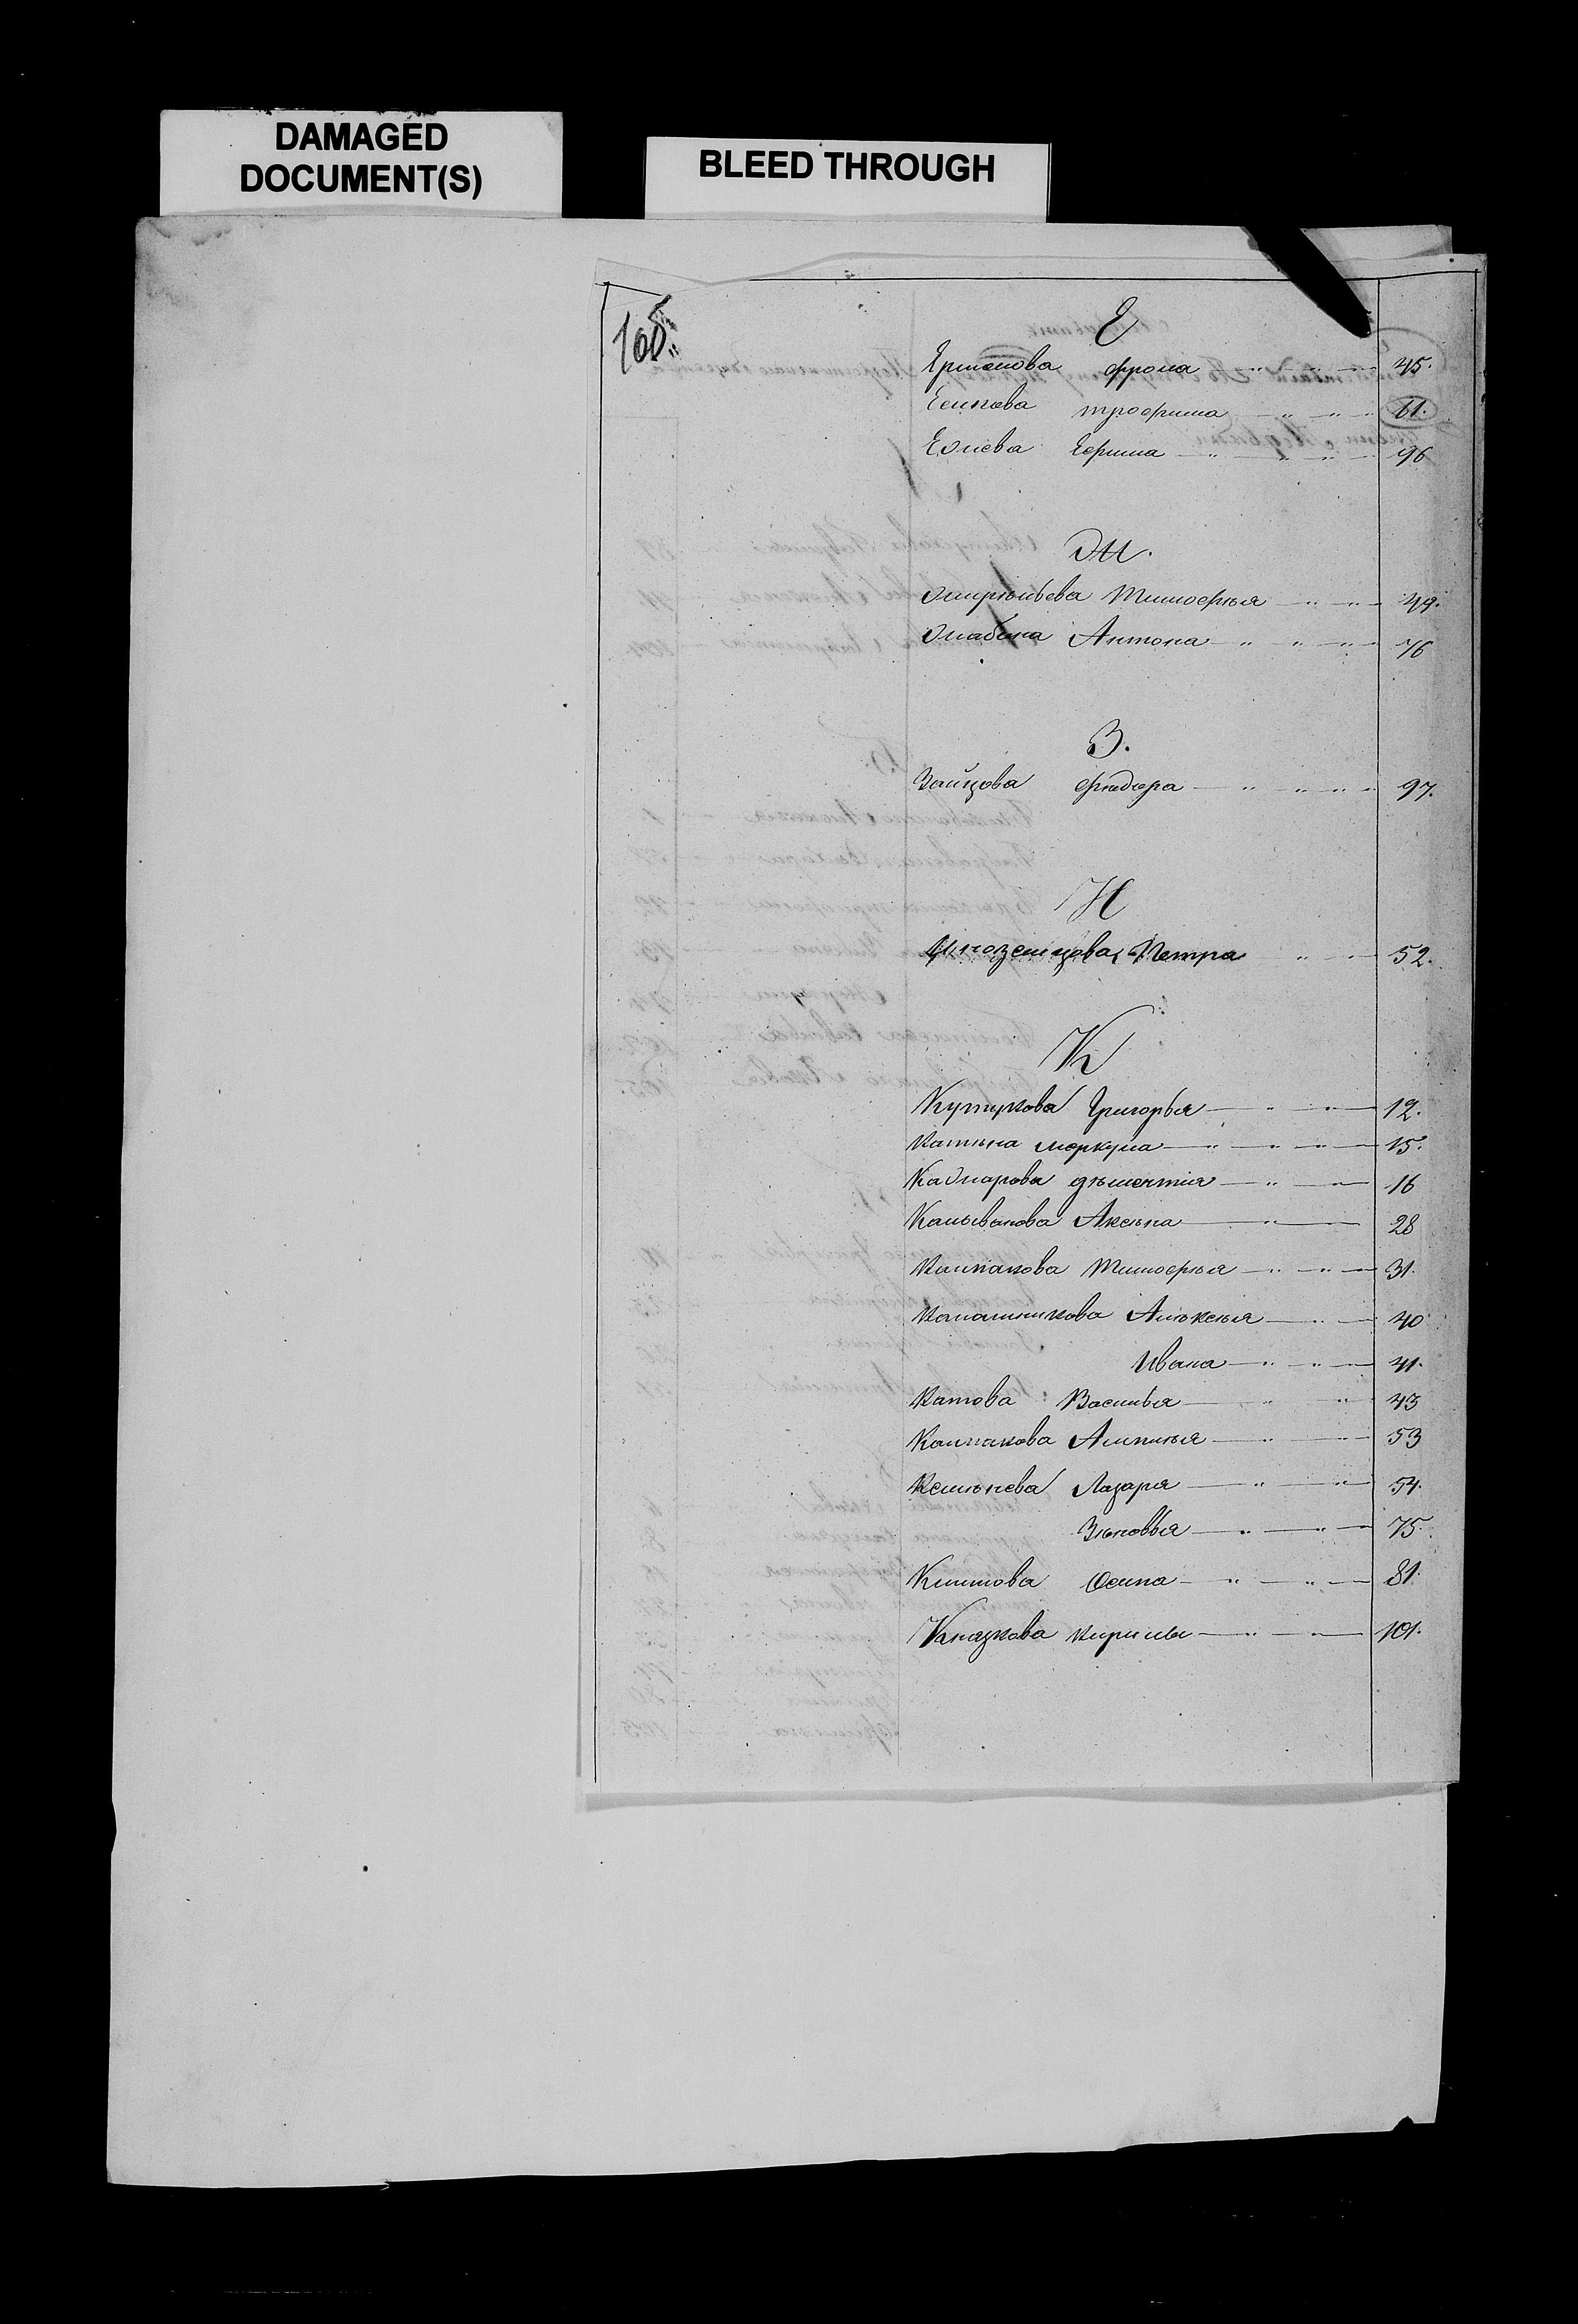 DAMAGED
DOCUMENT(S)
BLEED THROUGH
105.
Е
Ермакова Фрола 45.
Есипова Трофима 61.
Ежнева Ефима 96
Ж.
Жмурильева Тимофѣя 49.
Жабина Антона 76
З.
Зайцова Фѣдора 97.
И
Иноземцова Петра 52.
К
Кутукова Григорья 12.
Катына меркула 15.
Кажарова дѣментия 16
Колыванова Аксѣна 28
Колпакова Тимофѣя 31.
Калашникова Алѣксѣя 40
Ивана 41.
Катова Василья 43
Колпакова Алпиѣя 53
Кемѣнева Лазаря 54.
Зѣновья 75.
Климова Осипа 81.
Князкова Кирилы 101.